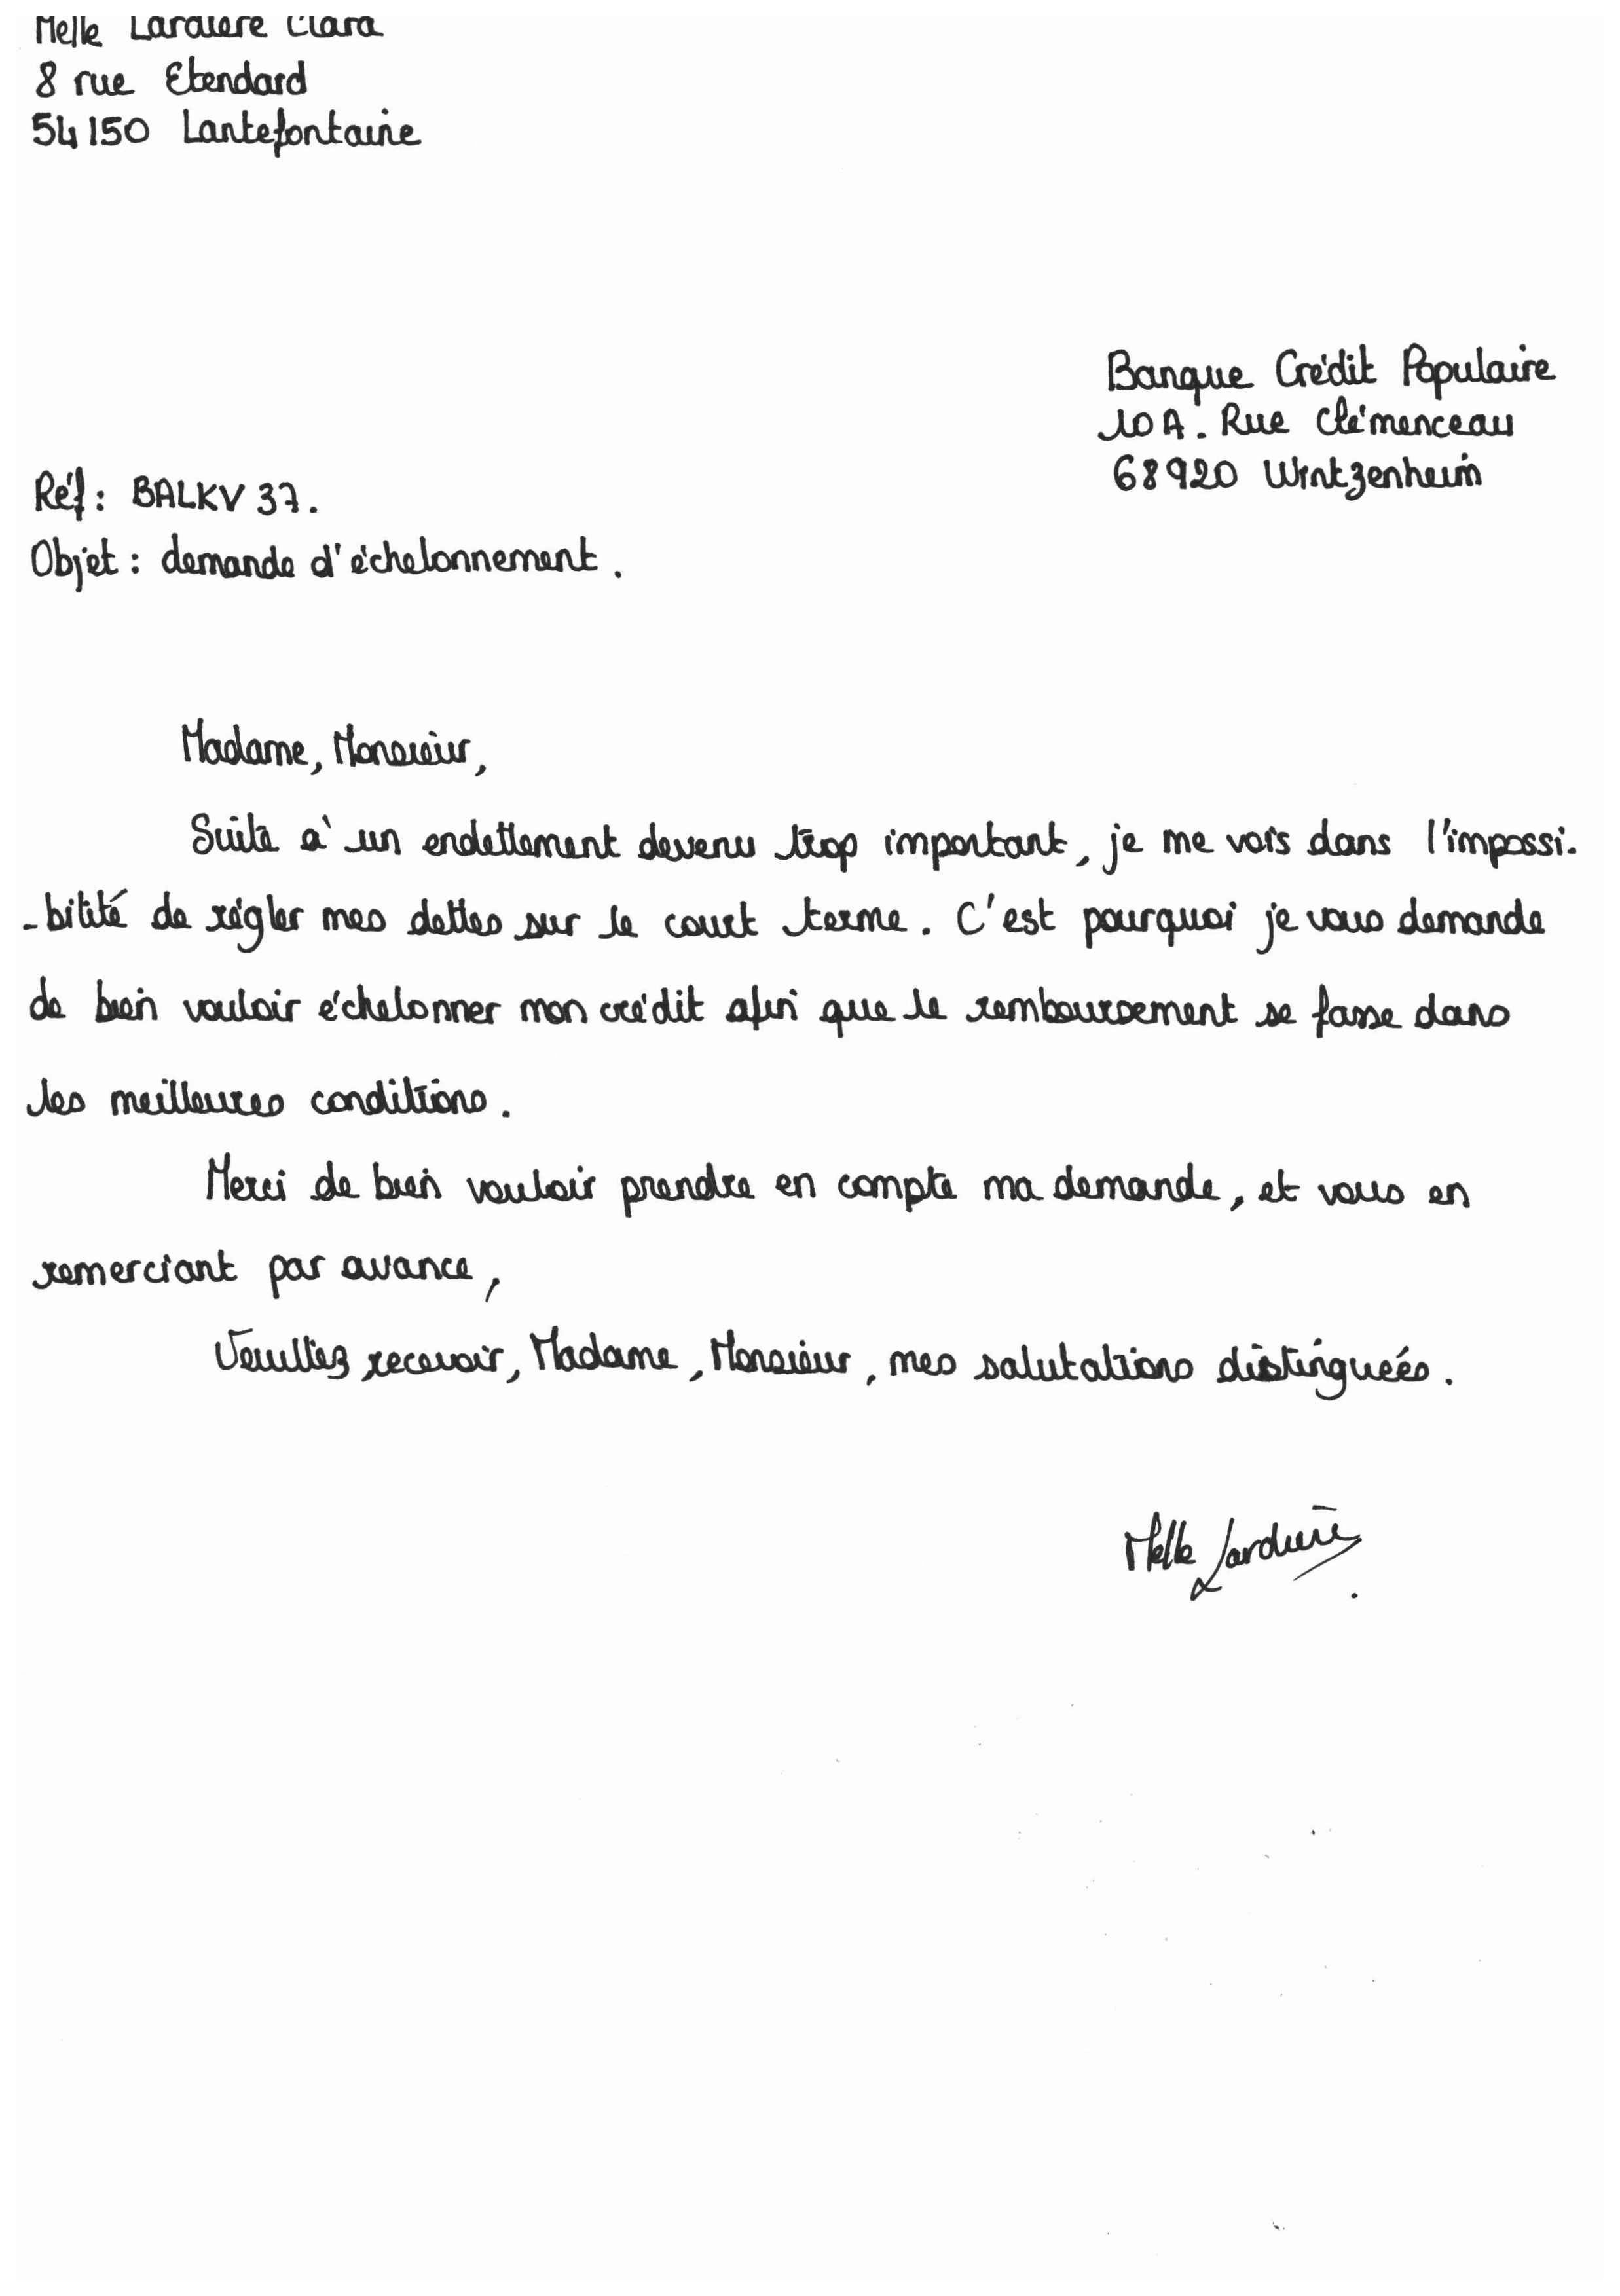 Melle Lardière Clara
8 rue Etendard
54150 Lantefontaine
Banque Crédit Populaire
10A. Rue Clémenceau
68920 Wintzenheim
Réf : BALKV 37.
Objet : demande d'échelonnement.
Madame, Monsieur,
Suite à un endettement devenu trop important, je me vois dans l'impossi-
-bilité de régler mes dettes sur le court terme. C'est pourquoi je vous demande
de bien vouloir échelonner mon crédit afin que le remboursement se fasse dans
les meilleures conditions.
Merci de bien vouloir prendre en compte ma demande, et vous en
remerciant par avance,
Veuillez recevoir, Madame, Monsieur, mes salutations distinguées.
Melle Lardière